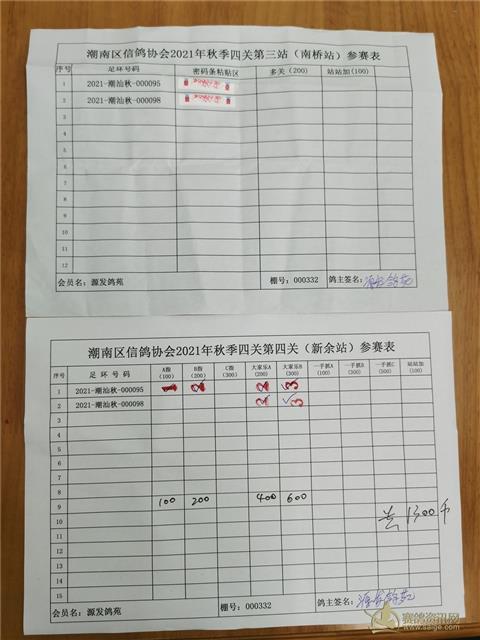 潮南区信鸽协会2021年秋季四关第三站（南桥站）参赛表
序号 足环号码 密码条粘贴区 多关（200） 站站加(100)
1 2021-潮汕秋-000095
2 2021-潮汕秋-000098
3
4
5
6
7
8
9
10
11
12
会员名：源发鸽苑 棚号：000332 鸽主签名：源发鸽苑
潮南区信鸽协会2021年秋季四关第四关（新余站）参赛表
序号 足环号码 A指(100) B指(200) C指(300) 大家乐A(200) 大家乐B(300) 一手抓A(100) 一手抓B(300) 一手抓C(500) 站站加(100)
1 2021-潮汕秋-000095 1 2 2 3
2 2021-潮汕秋-000098 2 3
3
4
5
6
7
8
9 100 200 400 600
10 1300
11
12
13
14
15
会员名：源发鸽苑 棚号：000332 鸽主签名：源发鸽苑
赛鸽资讯网
www.saige.com